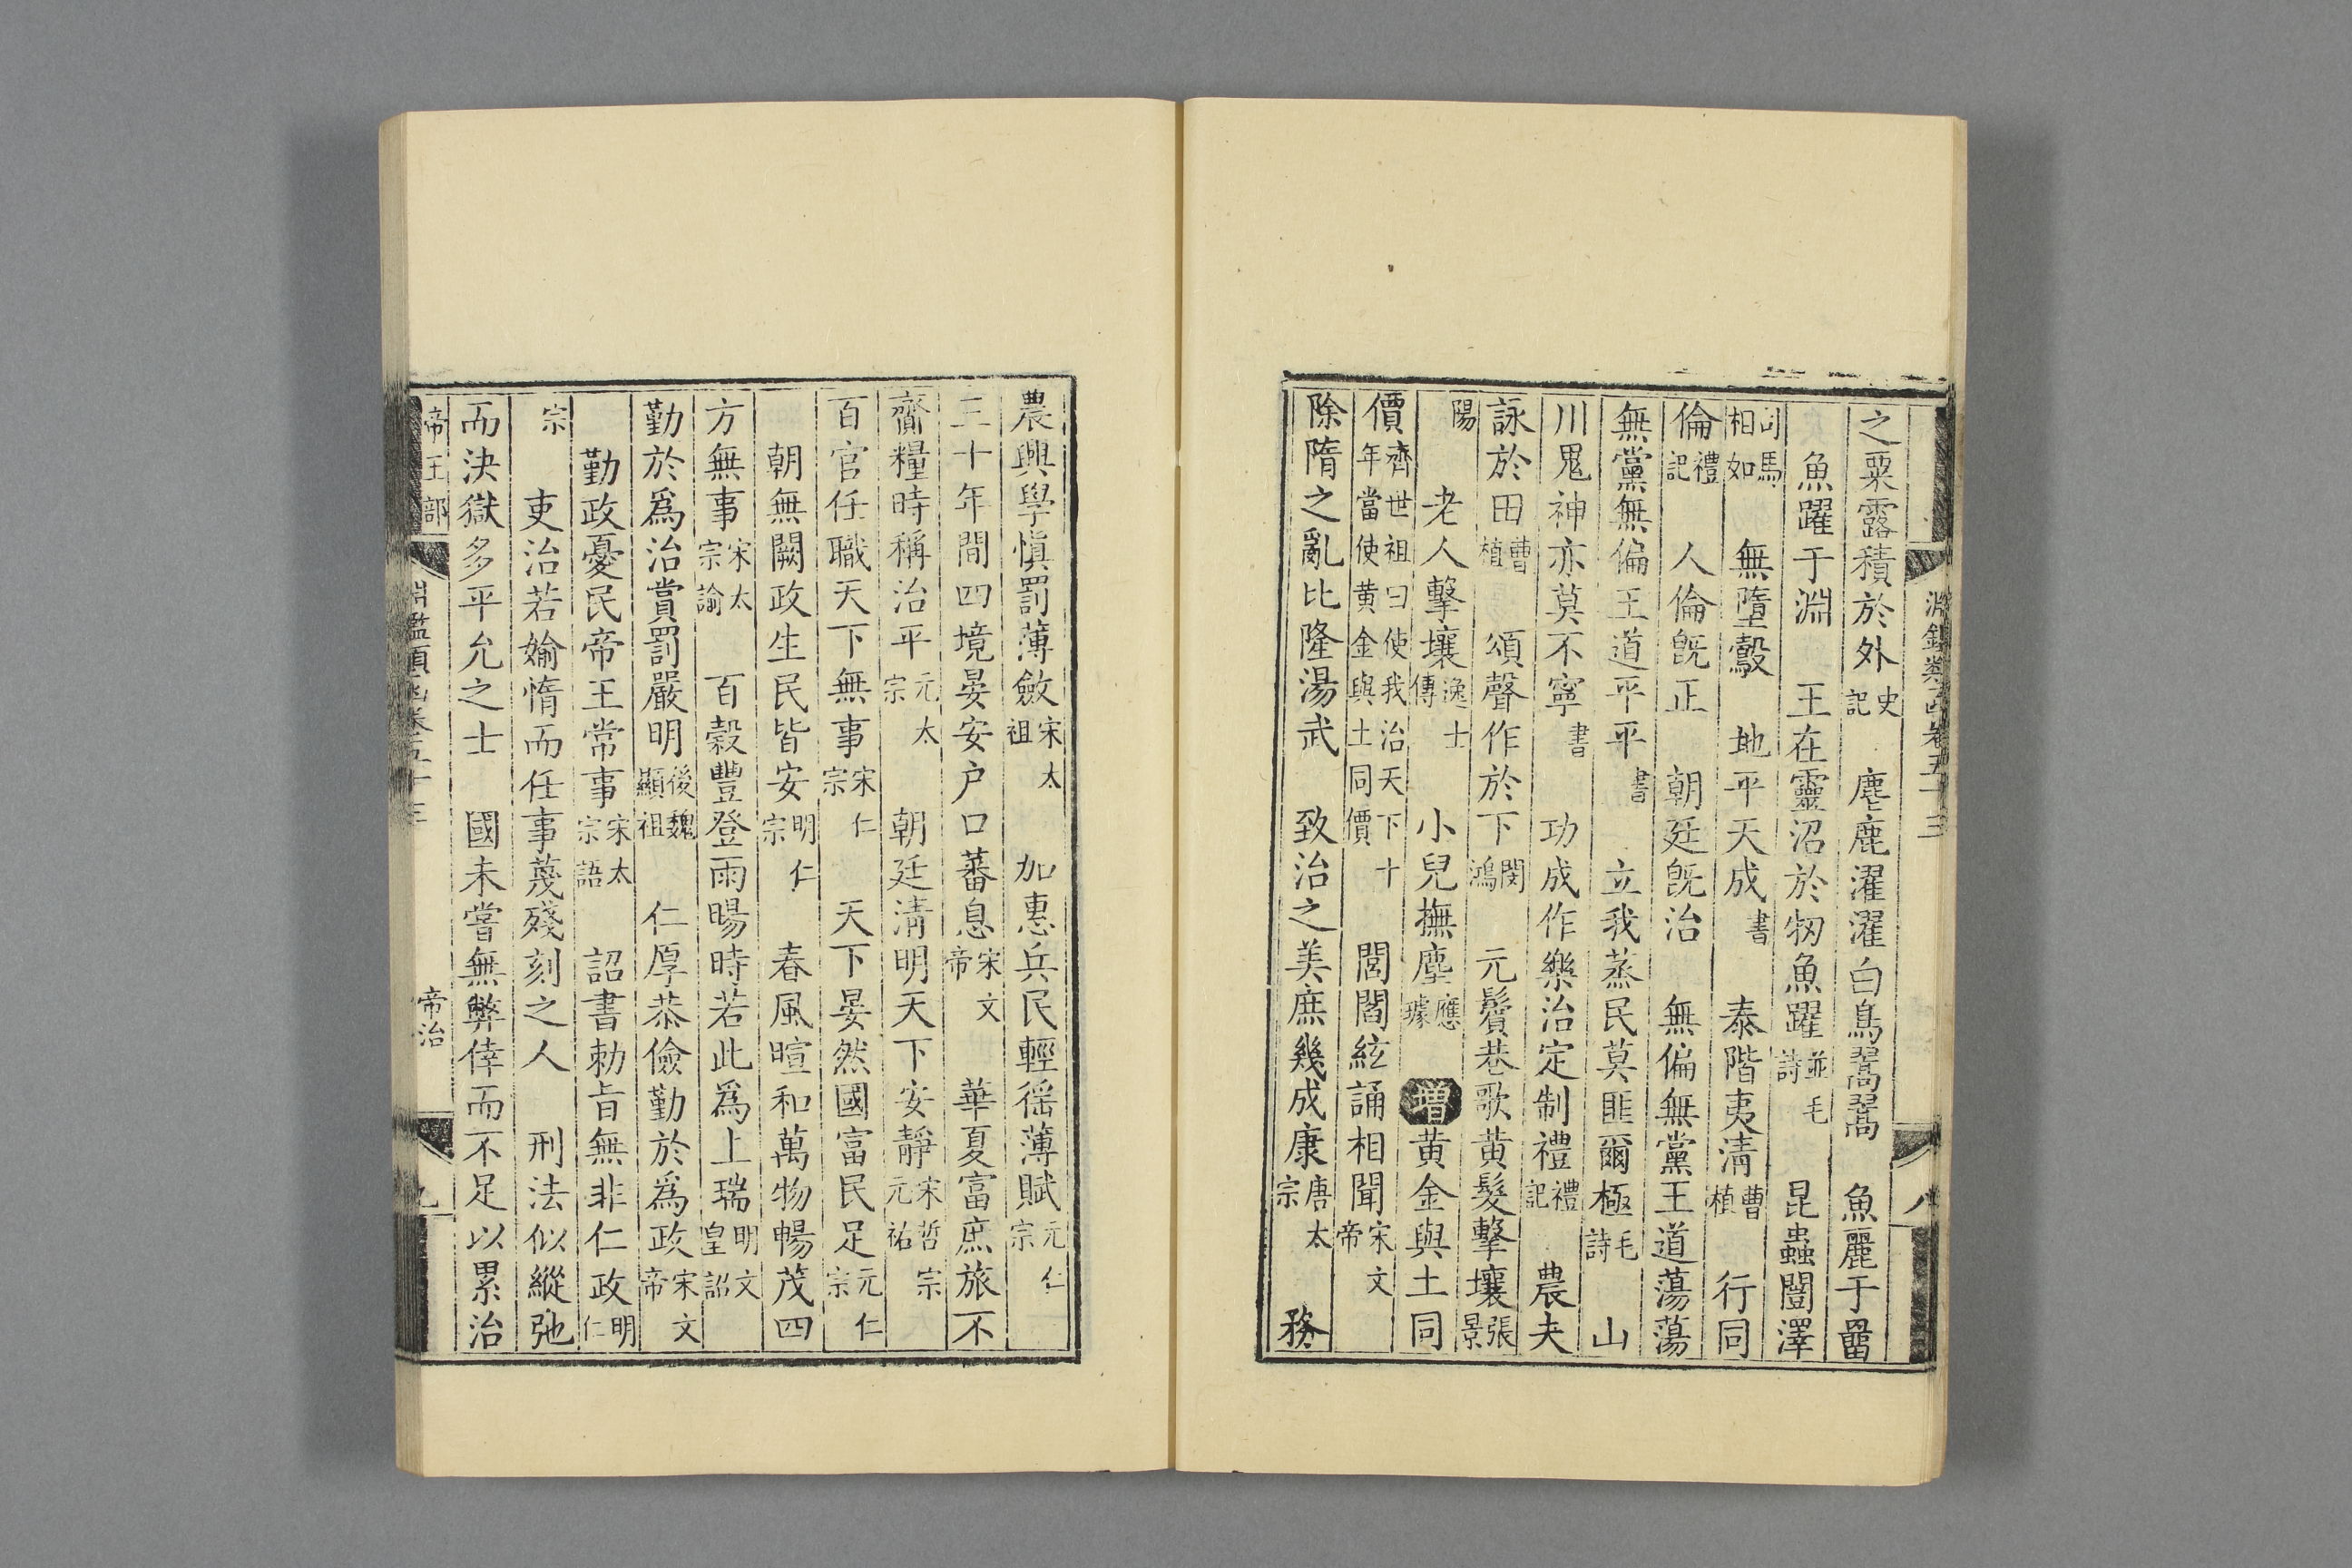 淵鑑類函卷五十三 八
之粟露積於外史記 麀鹿濯濯白鳥翯翯 魚麗于罶
魚躍于淵 王在靈沼於牣魚躍並毛詩 昆蟲闓澤
司馬相如 無墮鷇 地平天成書 泰階夷清曹植 行同
倫禮記 人倫旣正 朝廷旣治 無偏無黨王道蕩蕩
無黨無偏王道平平書 立我蒸民莫匪爾極毛詩 山
川鬼神亦莫不寧書 功成作樂治定制禮禮記 農夫
詠於田曹植 頌聲作於下閔鴻 元鬢巷歌黃髮擊壤張景
陽 老人擊壤逸士傳 小兒撫塵應璩 增黄金與土同
價齊世祖曰使我治天下十年當使黄金與土同價 閭閻絃誦相聞宋文帝
除隋之亂比隆湯武 致治之美庶幾成康唐太宗 務
農興學愼罰薄斂宋太祖 加惠兵民輕徭薄賦元仁宗
三十年間四境晏安户口蕃息宋文帝 華夏富庶旅不
齎糧時稱治平元太宗 朝廷淸明天下安靜宋哲宗元祐
百官任職天下無事宋仁宗 天下晏然國富民足元仁宗
朝無闕政生民皆安明仁宗 春風暄和萬物暢茂四
方無事宋太宗諭 百穀豐登雨暘時若此爲上瑞明文皇詔
勤於爲治賞罰嚴明後魏顯祖 仁厚恭儉勤於爲政宋文帝
勤政憂民帝王常事宋太宗語 詔書勅旨無非仁政明仁
宗 吏治若婾惰而任事蔑殘刻之人 刑法似縱弛
而決獄多平允之士 國未嘗無弊倖而不足以累治
帝王部 淵鑑類函卷五十三 帝治 九